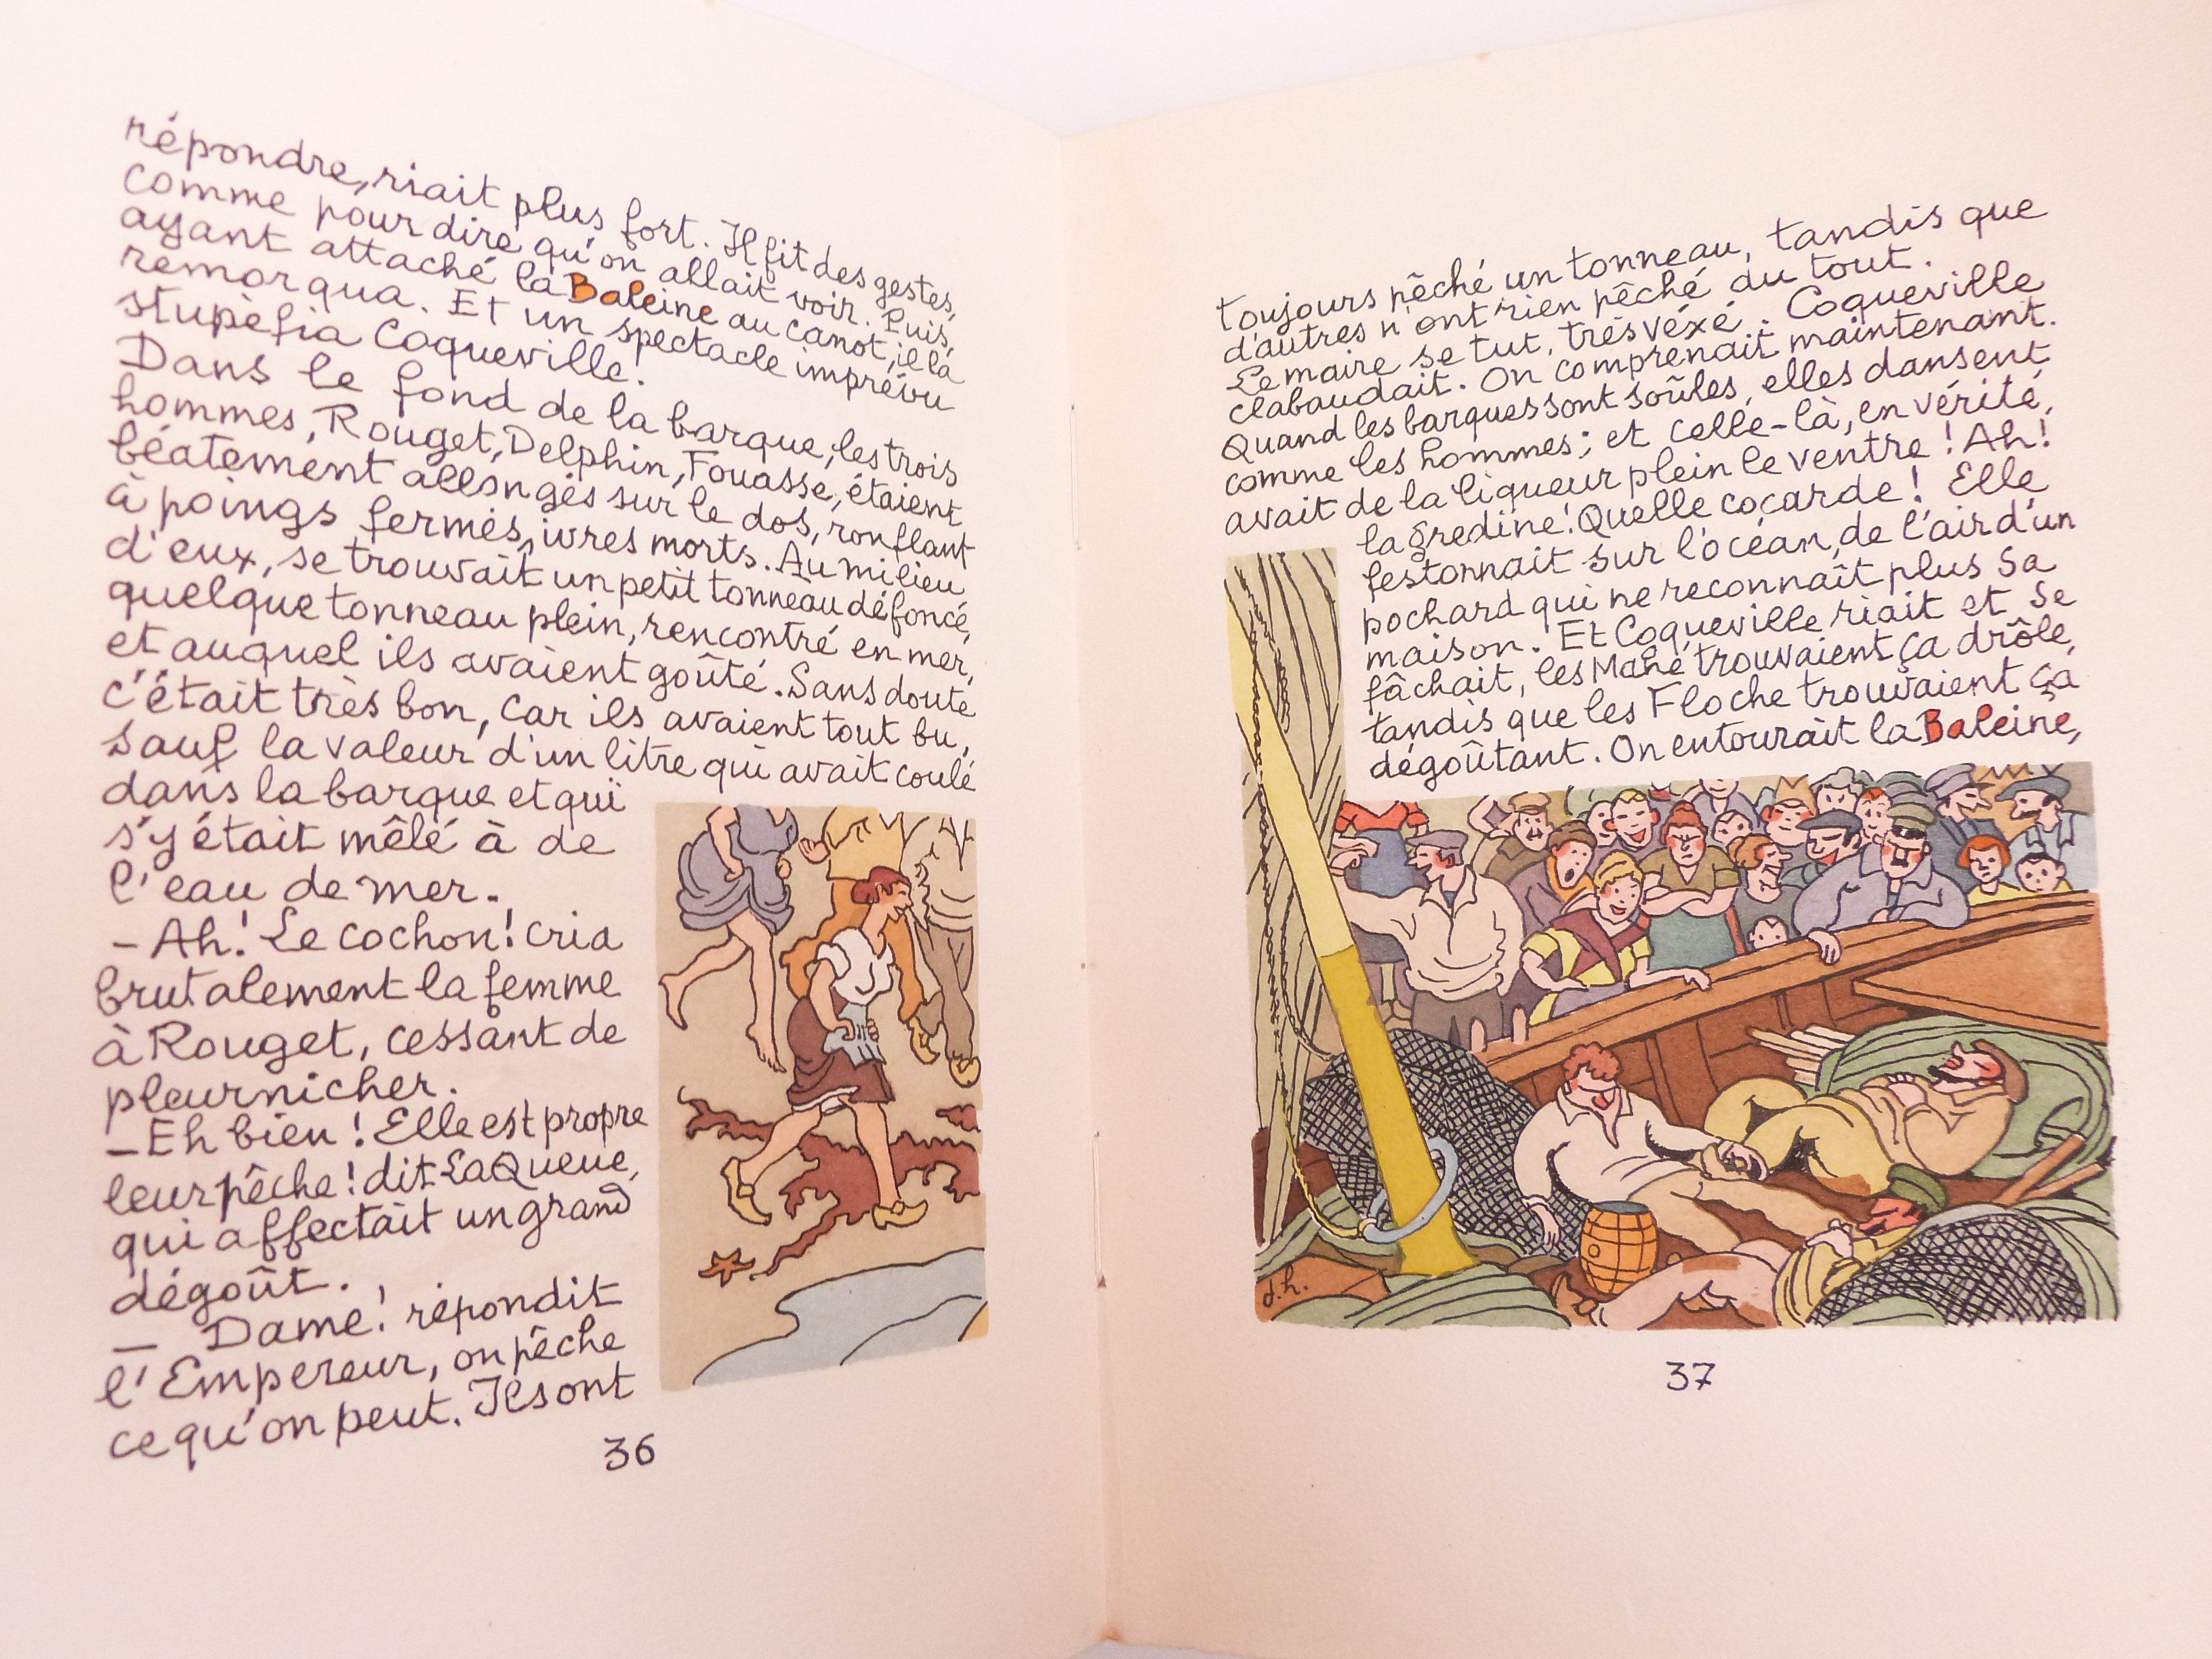 répondre, riait plus fort. Il fit des gestes,
comme pour dire qu'on allait voir. Puis,
ayant attaché la Baleine au canot, il la
remorqua. Et un spectacle imprévu
stupéfia Coqueville.
Dans le fond de la barque, les trois
hommes, Rouget, Delphin, Fouasse, étaient
béatement allongés sur le dos, ronflant
à poings fermés, ivres morts. Au milieu
d'eux, se trouvait un petit tonneau défoncé,
quelque tonneau plein, rencontré en mer,
et auquel ils avaient goûté. Sans doute
c'était très bon, car ils avaient tout bu,
sauf la valeur d'un litre qui avait coulé
dans la barque et qui
s'y était mêlé à de
l'eau de mer.
– Ah! Le cochon! cria
brutalement la femme
à Rouget, cessant de
pleurnicher.
– Eh bien! Elle est propre
leur pêche! dit La Queue,
qui affectait un grand
dégoût.
– Dame! répondit
l'Empereur, on pêche
ce qu'on peut. Ils ont
36
toujours pêché un tonneau, tandis que
d'autres n'ont rien pêché du tout.
Le maire se tut, très véxé. Coqueville
clabaudait. On comprenait maintenant.
Quand les barques sont soûles, elles dansent
comme les hommes; et celle-là, en vérité,
avait de la liqueur plein le ventre! Ah!
la gredine! Quelle cocarde! Elle
festonnait sur l'océan, de l'air d'un
pochard qui ne reconnaît plus sa
maison. Et Coqueville riait et se
fâchait, les Mahé trouvaient ça drôle,
tandis que les Floche trouvaient ça
dégoûtant. On entourait la Baleine,
d.h.
37